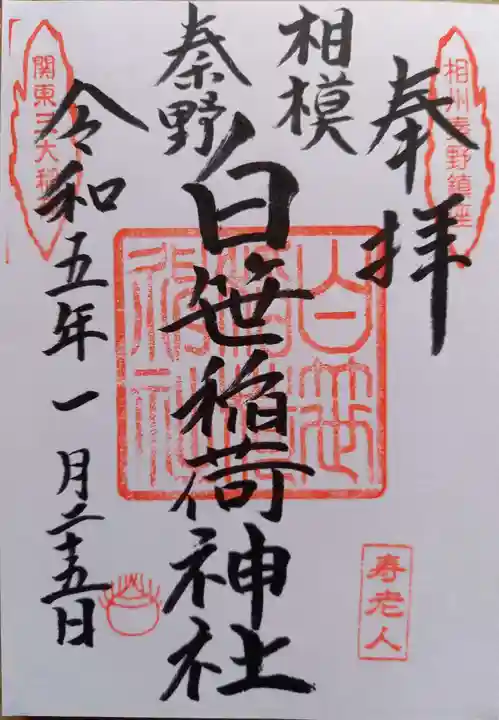 奉拝
相州秦野鎮座
相模
秦野
白笹稲荷神社
白笹
稲荷
神社
寿老人
関東三大稲
令和五年一月二十五日